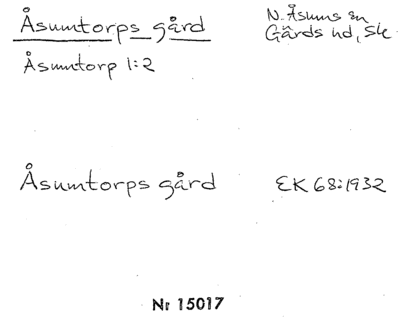 Åsumtorps gård
N. Åsums sn
Gärds hd, Sk
Åsumtorp 1:2
Åsumtorps gård EK 68:1932
Nr 15017